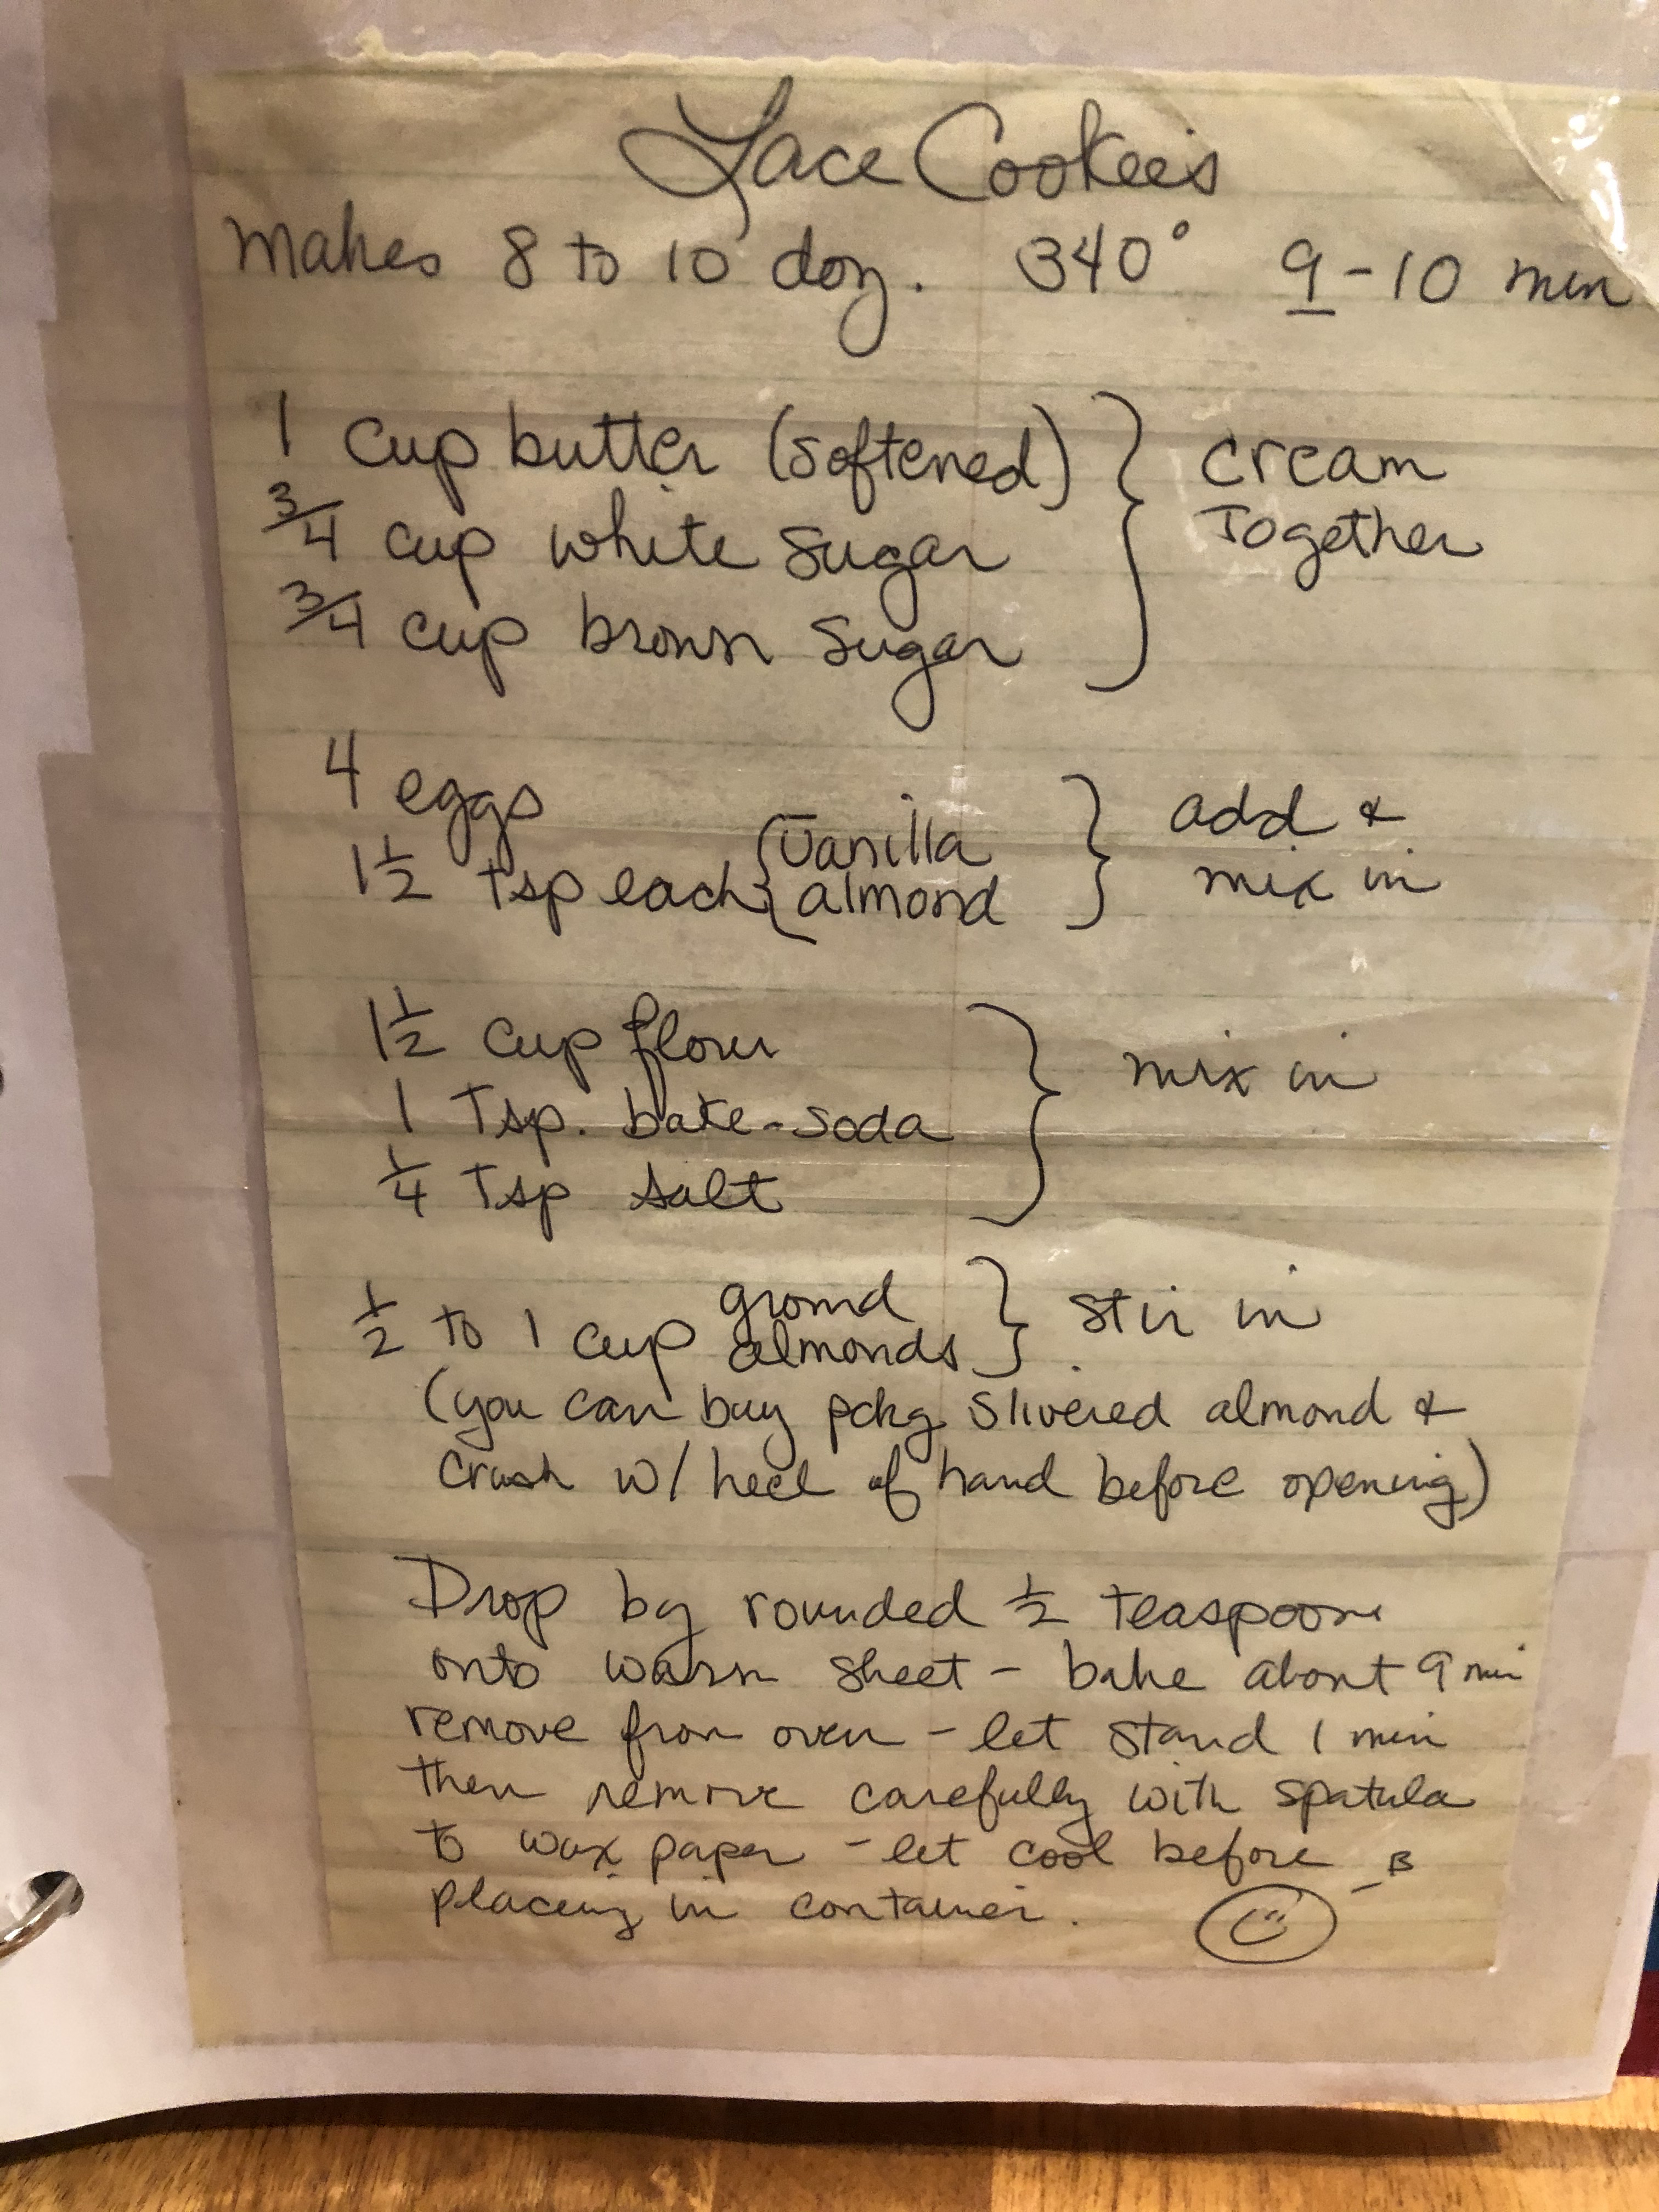 Lace Cookies
Makes 8 to 10 doz. 340° 9-10 min
1 cup butter (softened) } cream
3/4 cup white sugar Together
3/4 cup brown sugar
4 eggs } add &
1 1/2 tsp each { vanilla mix in
almond
1 1/2 cup flour } mix in
1 Tsp. bake-soda
1/4 Tsp salt
1/2 to 1 cup ground } stir in
almonds
(you can buy pckg slivered almond &
crush w/ heel of hand before opening)
Drop by rounded 1/2 teaspoon
onto warm sheet - bake about 9 min
remove from oven - let stand 1 min
then remove carefully with spatula
to wax paper - let cool before
placing in container. - B